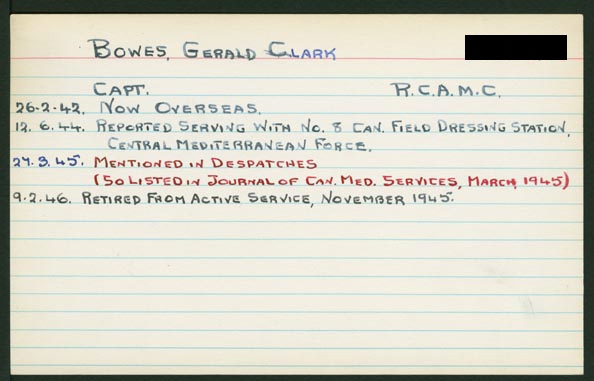 BOWES, GERALD CLARK
CAPT. R.C.A.M.C.
26.2.42. NOW OVERSEAS.
12.6.44. REPORTED SERVING WITH NO. 8 CAN. FIELD DRESSING STATION,
CENTRAL MEDITERRANEAN FORCE.
27.3.45. MENTIONED IN DESPATCHES
(SO LISTED IN JOURNAL OF CAN. MED. SERVICES, MARCH, 1945)
9.2.46. RETIRED FROM ACTIVE SERVICE, NOVEMBER 1945.